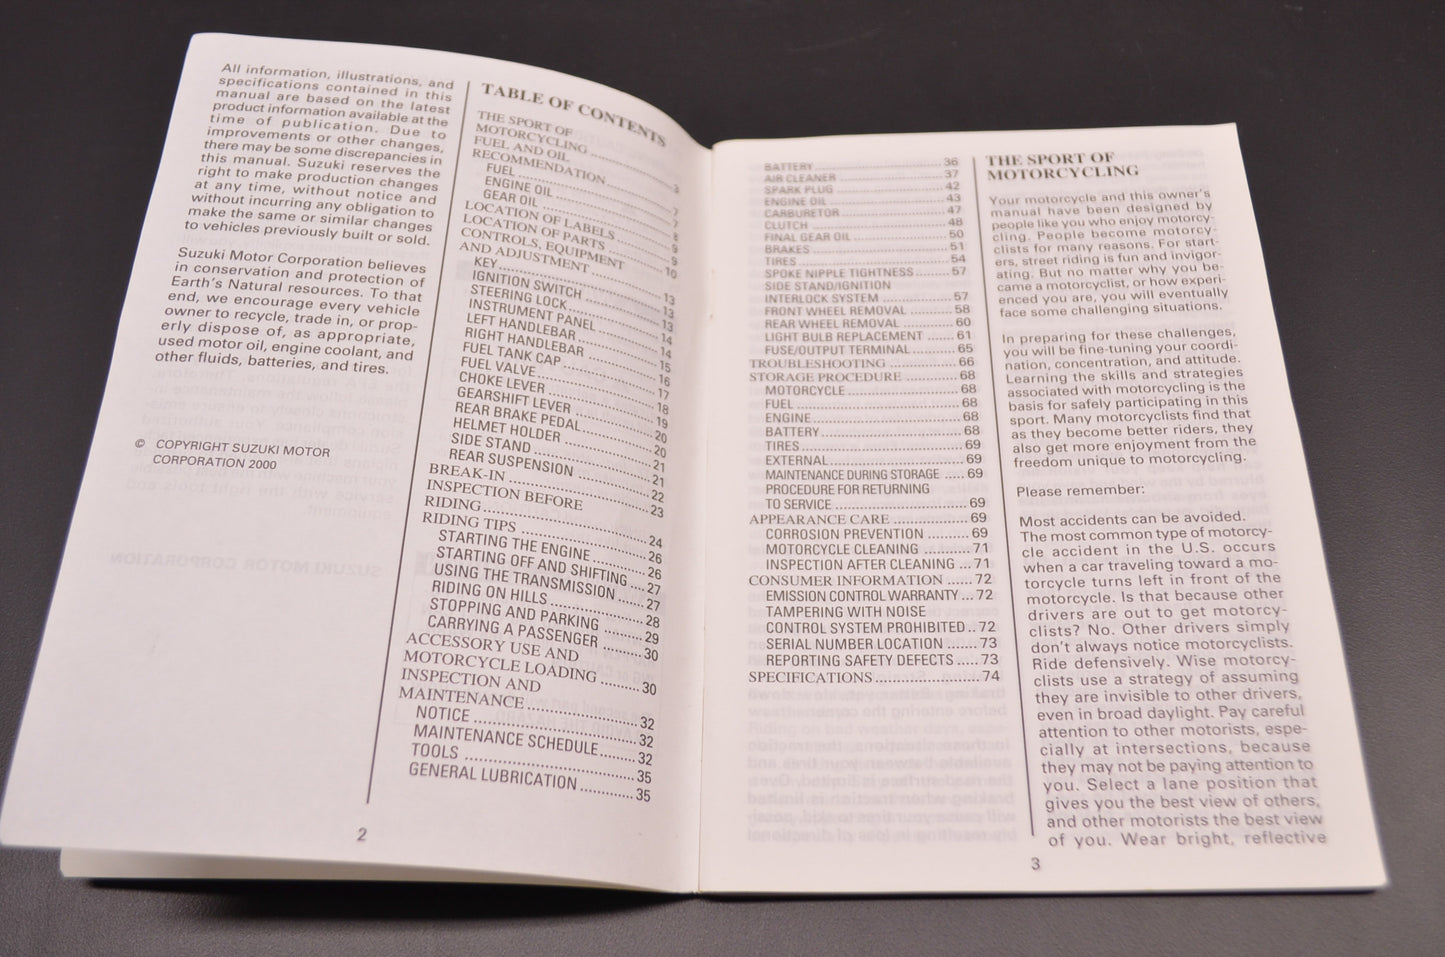 All information, illustrations, and
specifications contained in this
manual are based on the latest
product information available at the
time of publication. Due to
improvements or other changes,
there may be some discrepancies in
this manual. Suzuki reserves the
right to make production changes
at any time, without notice and
without incurring any obligation to
make the same or similar changes
to vehicles previously built or sold.
Suzuki Motor Corporation believes
in conservation and protection of
Earth's Natural resources. To that
end, we encourage every vehicle
owner to recycle, trade in, or prop-
erly dispose of, as appropriate,
used motor oil, engine coolant, and
other fluids, batteries, and tires.
© COPYRIGHT SUZUKI MOTOR
CORPORATION 2000
TABLE OF CONTENTS
THE SPORT OF
MOTORCYCLING .................... 3
FUEL AND OIL
RECOMMENDATION .................... 7
FUEL .................... 7
ENGINE OIL .................... 7
GEAR OIL .................... 8
LOCATION OF LABELS .................... 9
LOCATION OF PARTS .................... 9
CONTROLS, EQUIPMENT
AND ADJUSTMENT .................... 13
KEY .................... 13
IGNITION SWITCH .................... 13
STEERING LOCK .................... 14
INSTRUMENT PANEL .................... 14
LEFT HANDLEBAR .................... 15
RIGHT HANDLEBAR .................... 16
FUEL TANK CAP .................... 17
FUEL VALVE .................... 18
CHOKE LEVER .................... 19
GEARSHIFT LEVER .................... 20
REAR BRAKE PEDAL .................... 20
HELMET HOLDER .................... 21
SIDE STAND .................... 21
REAR SUSPENSION .................... 22
BREAK-IN .................... 23
INSPECTION BEFORE
RIDING .................... 24
RIDING TIPS .................... 26
STARTING THE ENGINE .................... 26
STARTING OFF AND SHIFTING .... 27
USING THE TRANSMISSION ...... 27
RIDING ON HILLS .................... 28
STOPPING AND PARKING ......... 29
CARRYING A PASSENGER ......... 30
ACCESSORY USE AND
MOTORCYCLE LOADING .......... 30
INSPECTION AND
MAINTENANCE .................... 32
NOTICE .................... 32
MAINTENANCE SCHEDULE ........ 32
TOOLS .................... 35
GENERAL LUBRICATION ............ 35
2
BATTERY .................... 36
AIR CLEANER .................... 37
SPARK PLUG .................... 42
ENGINE OIL .................... 43
CARBURETOR .................... 47
CLUTCH .................... 48
FINAL GEAR OIL .................... 50
BRAKES .................... 51
TIRES .................... 54
SPOKE NIPPLE TIGHTNESS ......... 57
SIDE STAND/IGNITION
INTERLOCK SYSTEM .................... 57
FRONT WHEEL REMOVAL ............ 58
REAR WHEEL REMOVAL ............ 60
LIGHT BULB REPLACEMENT ....... 61
FUSE/OUTPUT TERMINAL ............ 65
TROUBLESHOOTING .................... 66
STORAGE PROCEDURE ............... 68
MOTORCYCLE .................... 68
FUEL .................... 68
ENGINE .................... 68
BATTERY .................... 68
TIRES .................... 69
EXTERNAL .................... 69
MAINTENANCE DURING STORAGE ..... 69
PROCEDURE FOR RETURNING
TO SERVICE .................... 69
APPEARANCE CARE .................... 69
CORROSION PREVENTION .......... 69
MOTORCYCLE CLEANING .......... 71
INSPECTION AFTER CLEANING ... 71
CONSUMER INFORMATION ....... 72
EMISSION CONTROL WARRANTY ... 72
TAMPERING WITH NOISE
CONTROL SYSTEM PROHIBITED .. 72
SERIAL NUMBER LOCATION ....... 73
REPORTING SAFETY DEFECTS ..... 73
SPECIFICATIONS .................... 74
THE SPORT OF
MOTORCYCLING
Your motorcycle and this owner's
manual have been designed by
people like you who enjoy motorcy-
cling. People become motorcy-
clists for many reasons. For start-
ers, street riding is fun and invigor-
ating. But no matter why you be-
came a motorcyclist, or how experi-
enced you are, you will eventually
face some challenging situations.
In preparing for these challenges,
you will be fine-tuning your coordi-
nation, concentration, and attitude.
Learning the skills and strategies
associated with motorcycling is the
basis for safely participating in this
sport. Many motorcyclists find that
as they become better riders, they
also get more enjoyment from the
freedom unique to motorcycling.
Please remember:
Most accidents can be avoided.
The most common type of motorcy-
cle accident in the U.S. occurs
when a car traveling toward a mo-
torcycle turns left in front of the
motorcycle. Is that because other
drivers are out to get motorcy-
clists? No. Other drivers simply
don't always notice motorcyclists.
Ride defensively. Wise motorcy-
clists use a strategy of assuming
they are invisible to other drivers,
even in broad daylight. Pay careful
attention to other motorists, espe-
cially at intersections, because
they may not be paying attention to
you. Select a lane position that
gives you the best view of others,
and other motorists the best view
of you. Wear bright, reflective
3